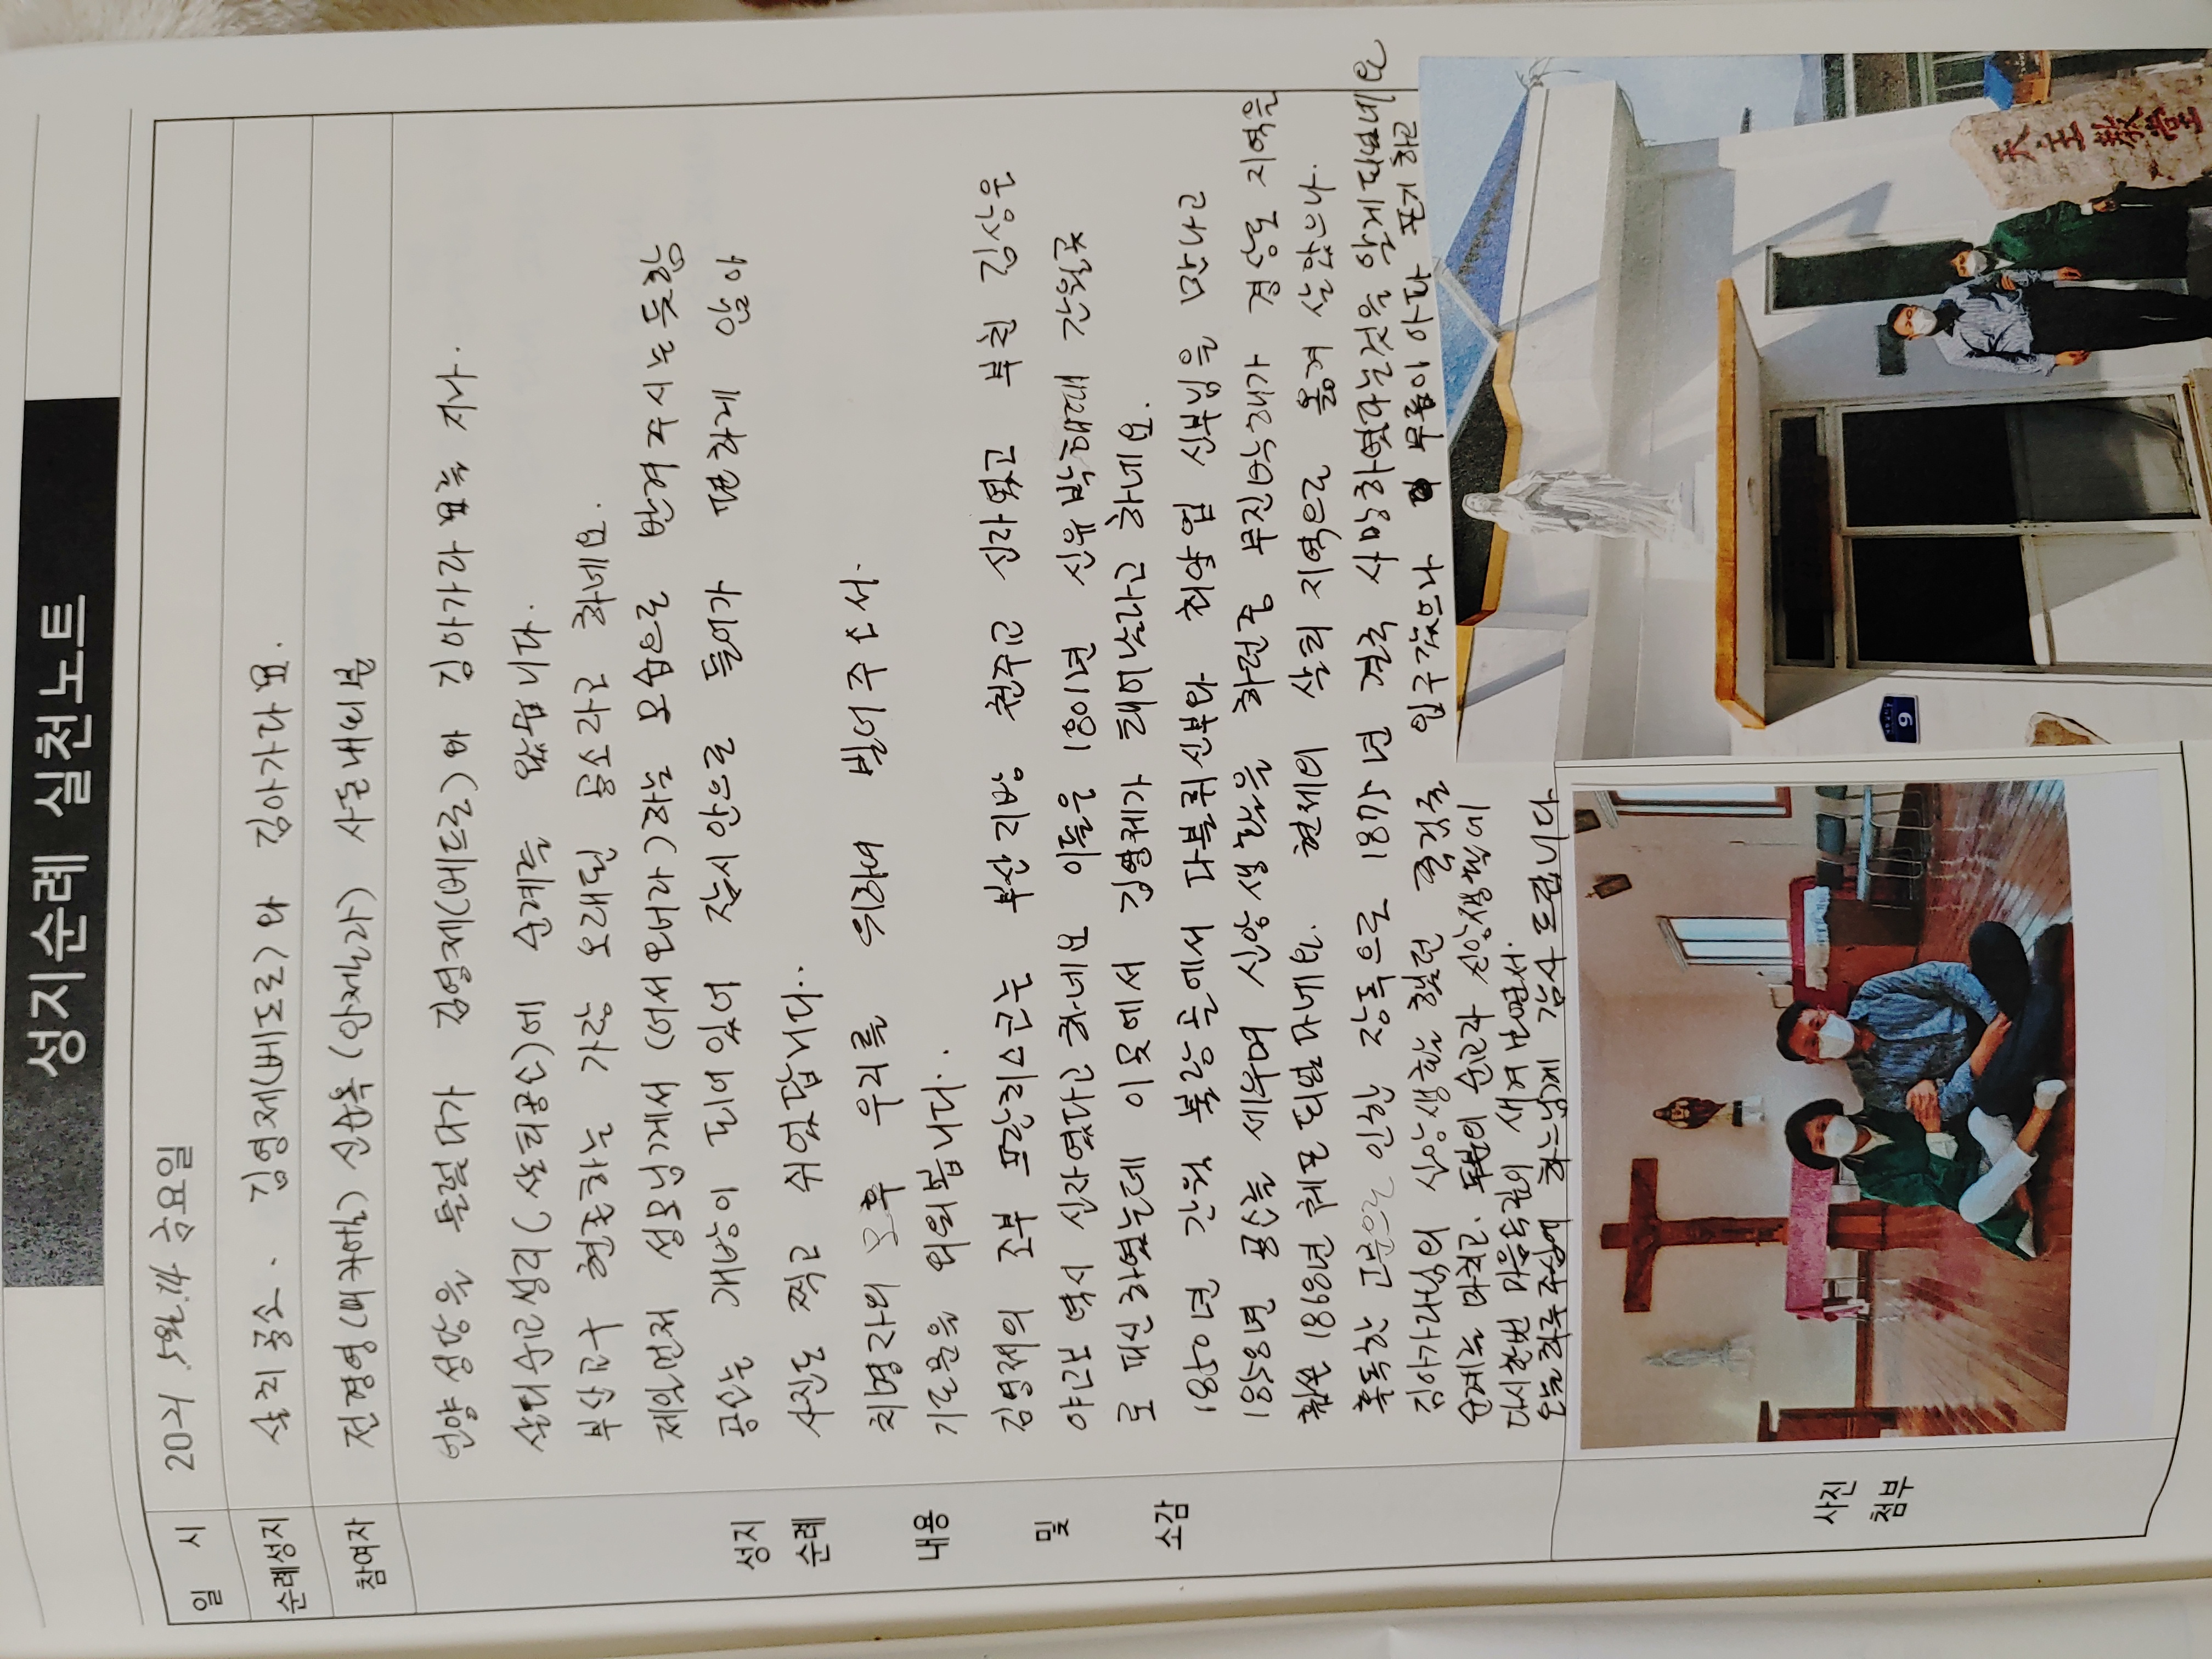 성지순례 실천노트
일 시 2021 5월.14 금요일
순례성지 살티공소. 김영제(베드로)와 김아가다묘.
참여자 전경영(미카엘) 신순옥(안젤라) 사돈내외분
언양성당을 들렸다가 김영제(베드로)와 김아가다묘를 지나.
살티순교성지(살티공소)에 순례를 왔습니다.
부산교구 현존하는 가장 오래된 공소라고 하네요.
제일먼저 성모님께서 (어서오너라)하는 모습으로 반겨주시는듯함
공소는 개방이 되어있어 잠시안으로 들어가 편하게 앉아
사진도 찍고 쉬었답니다..
치명자의 모후 우리를 위하여 빌어주소서.
기도문을 외워봅니다..
김영제의 조부 프란치스코는 부산지방 천주교 신자였고 부친 김상은
야고보 역시 신자였다고하네요 이들은 1801년 신유박해때 간월곳
로 피신하였는데 이곳에서 김영제가 태어났다고 하네요.
1850년 간월 불랑골에서 다블뤼신부와 최양업 신부님을 만나고
1858년 공소를 세우며 신앙생활을 하던중 무진박해가 경상도 지역을
휩쓴 1868년 체포되었다네요. 현제의 살티 지역으로 옮겨 살았으나.
혹독한 고문으로 인한 장독으로 1875년 결국 사망하였다는것을 알게되었네요
김아가다님의 신앙생활 했던 죽림굴 입구갔으나 무릎이 아파 포기하고
순례를 마치고. 두분의 순교과 신앙생활에
다시한번 마음속깊이 새겨보면서.
오늘하루주심에 하느님께 감사드립니다
성지
순례
내용
및
소감
사진
첨부
9
天主教堂